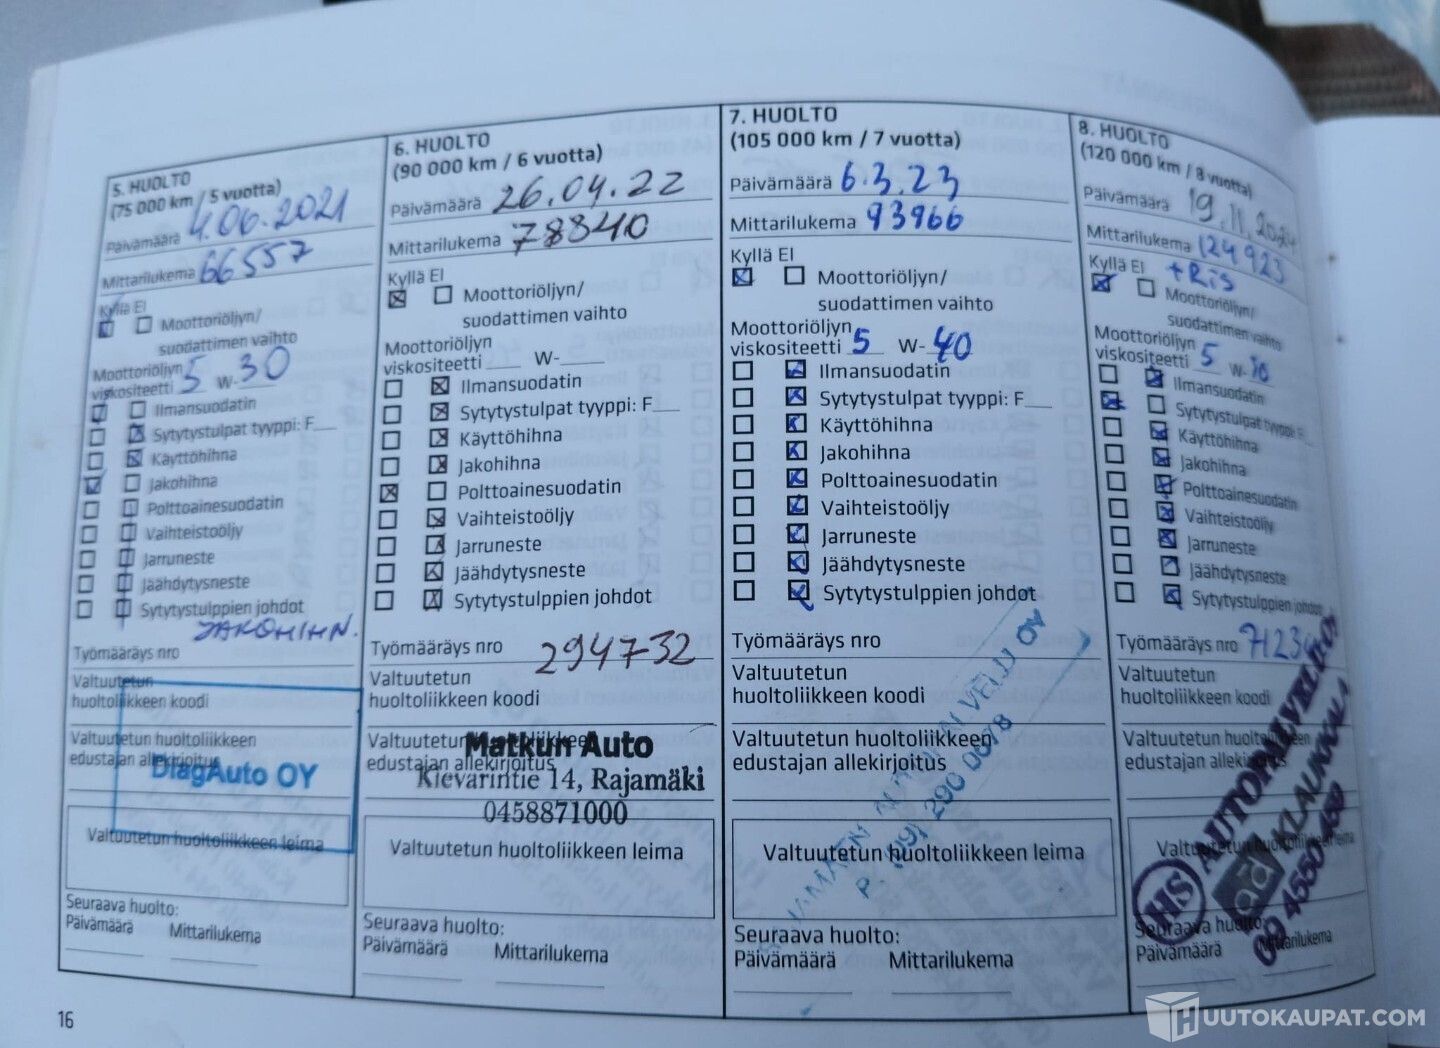 5. HUOLTO
(75 000 km / 5 vuotta)
Päivämäärä 4.06.2021
Mittarilukema 66557
Kyllä Ei
Moottoriöljyn/
suodattimen vaihto
Moottoriöljyn
viskositeetti 5 W-30
Ilmansuodatin
Sytytystulpat tyyppi: F__
Käyttöhihna
Jakohihna
Polttoainesuodatin
Vaihteistoöljy
Jarruneste
Jäähdytysneste
Sytytystulppien johdot
JAKOHIHN.
Työmääräys nro
Valtuutetun
huoltoliikkeen koodi
Valtuutetun huoltoliikkeen
edustajan allekirjoitus
DiagAuto OY
Valtuutetun huoltoliikkeen leima
Seuraava huolto:
Päivämäärä Mittarilukema
6. HUOLTO
(90 000 km / 6 vuotta)
Päivämäärä 26.04.22
Mittarilukema 78840
Kyllä Ei
Moottoriöljyn/
suodattimen vaihto
Moottoriöljyn
viskositeetti ___ W-___
Ilmansuodatin
Sytytystulpat tyyppi: F__
Käyttöhihna
Jakohihna
Polttoainesuodatin
Vaihteistoöljy
Jarruneste
Jäähdytysneste
Sytytystulppien johdot
Työmääräys nro 294732
Valtuutetun
huoltoliikkeen koodi
Valtuutetun huoltoliikkeen
edustajan allekirjoitus
Matkun Auto
Kievarintie 14, Rajamäki
0458871000
Valtuutetun huoltoliikkeen leima
Seuraava huolto:
Päivämäärä Mittarilukema
7. HUOLTO
(105 000 km / 7 vuotta)
Päivämäärä 6.3.23
Mittarilukema 93966
Kyllä Ei
Moottoriöljyn/
suodattimen vaihto
Moottoriöljyn
viskositeetti 5 W-40
Ilmansuodatin
Sytytystulpat tyyppi: F__
Käyttöhihna
Jakohihna
Polttoainesuodatin
Vaihteistoöljy
Jarruneste
Jäähdytysneste
Sytytystulppien johdot
Työmääräys nro
Valtuutetun
huoltoliikkeen koodi
Valtuutetun huoltoliikkeen
edustajan allekirjoitus
OY
P. (09) 290 0678
Valtuutetun huoltoliikkeen leima
Seuraava huolto:
Päivämäärä Mittarilukema
8. HUOLTO
(120 000 km / 8 vuotta)
Päivämäärä 19.11.2024
Mittarilukema 124923
Kyllä Ei +RiS
Moottoriöljyn/
suodattimen vaihto
Moottoriöljyn
viskositeetti 5 W-30
Ilmansuodatin
Sytytystulpat tyyppi: F
Käyttöhihna
Jakohihna
Polttoainesuodatin
Vaihteistoöljy
Jarruneste
Jäähdytysneste
Sytytystulppien johdot
Työmääräys nro
Valtuutetun
huoltoliikkeen koodi
Valtuutetun huoltoliikkeen
edustajan
HS
KLAUKKALA
09 4550 4550
Seuraava huolto:
Päivämäärä Mittarilukema
16
HUUTOKAUPAT.COM